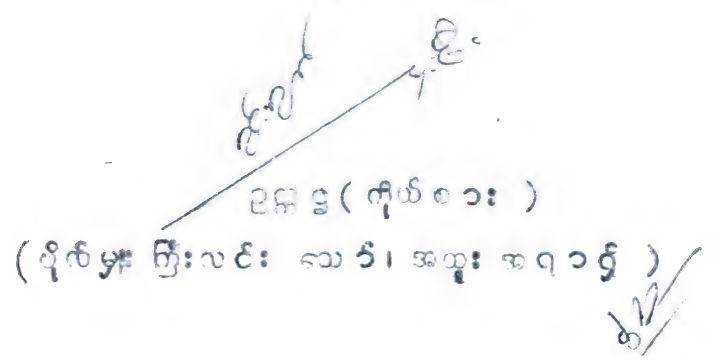 ဥက္ကဋ္ဌ ( ကိုယ်စား )
( ဗိုလ်မှူး ကြီးလင်း သော်၊ အထူး အရာရှိ )